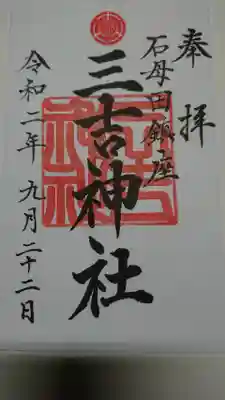 奉拝
石母田鎮座
三吉神社
令和二年九月二十二日